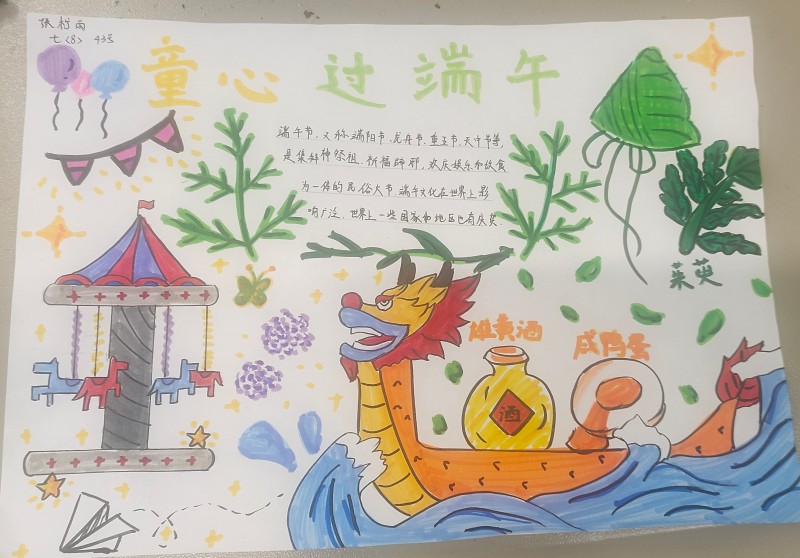 张
七〈8〉 43号
童心 过端午
端午节、又称端阳节、龙舟节、重五节、天中节等,
是集拜神祭祖、祈福辟邪、欢庆娱乐和饮食
为一体的民俗大节,端午文化在世界上影
响广泛、世界上一些国家和地区也有庆贺
茱萸
雄黄酒
咸鸭蛋
酒